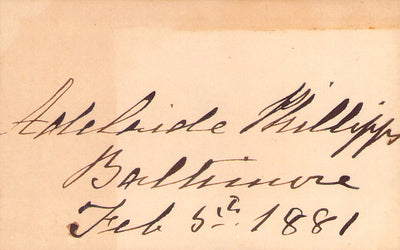 Adelaide Phillipps
Baltimore
Feb 5th 1881